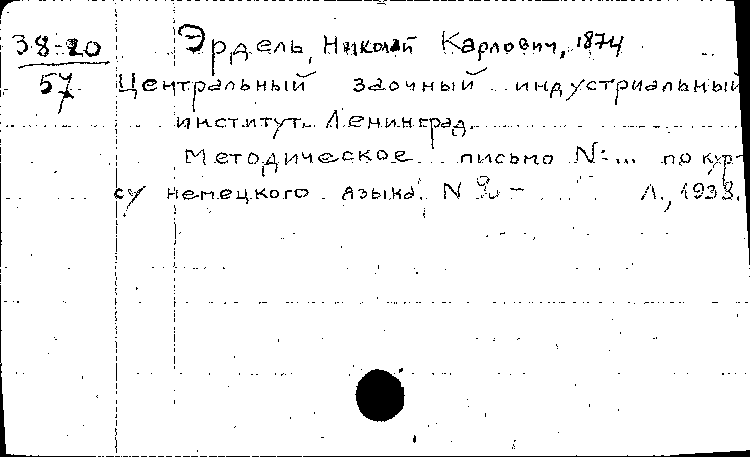 38-20
57
Эрдель, Николай Карлович, 1874
Центральный заочный индустриальный
институт. Ленинград.
Методическое письмо №... по кур-
су немецкого языка. N 2 - Л., 1938.